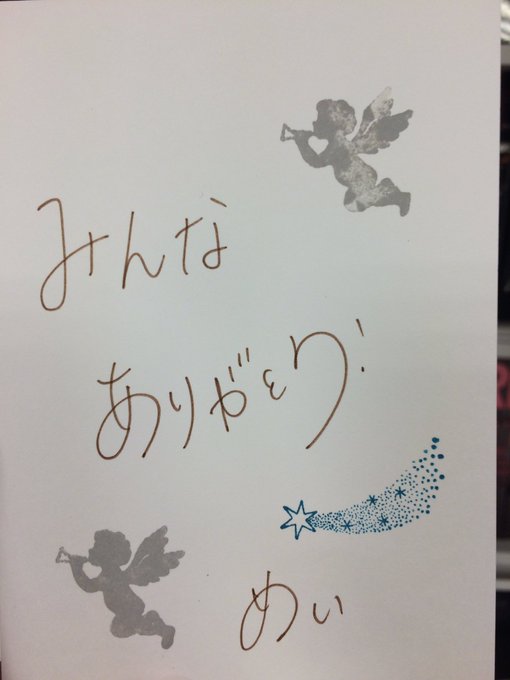 みんな
ありがとう!
めい